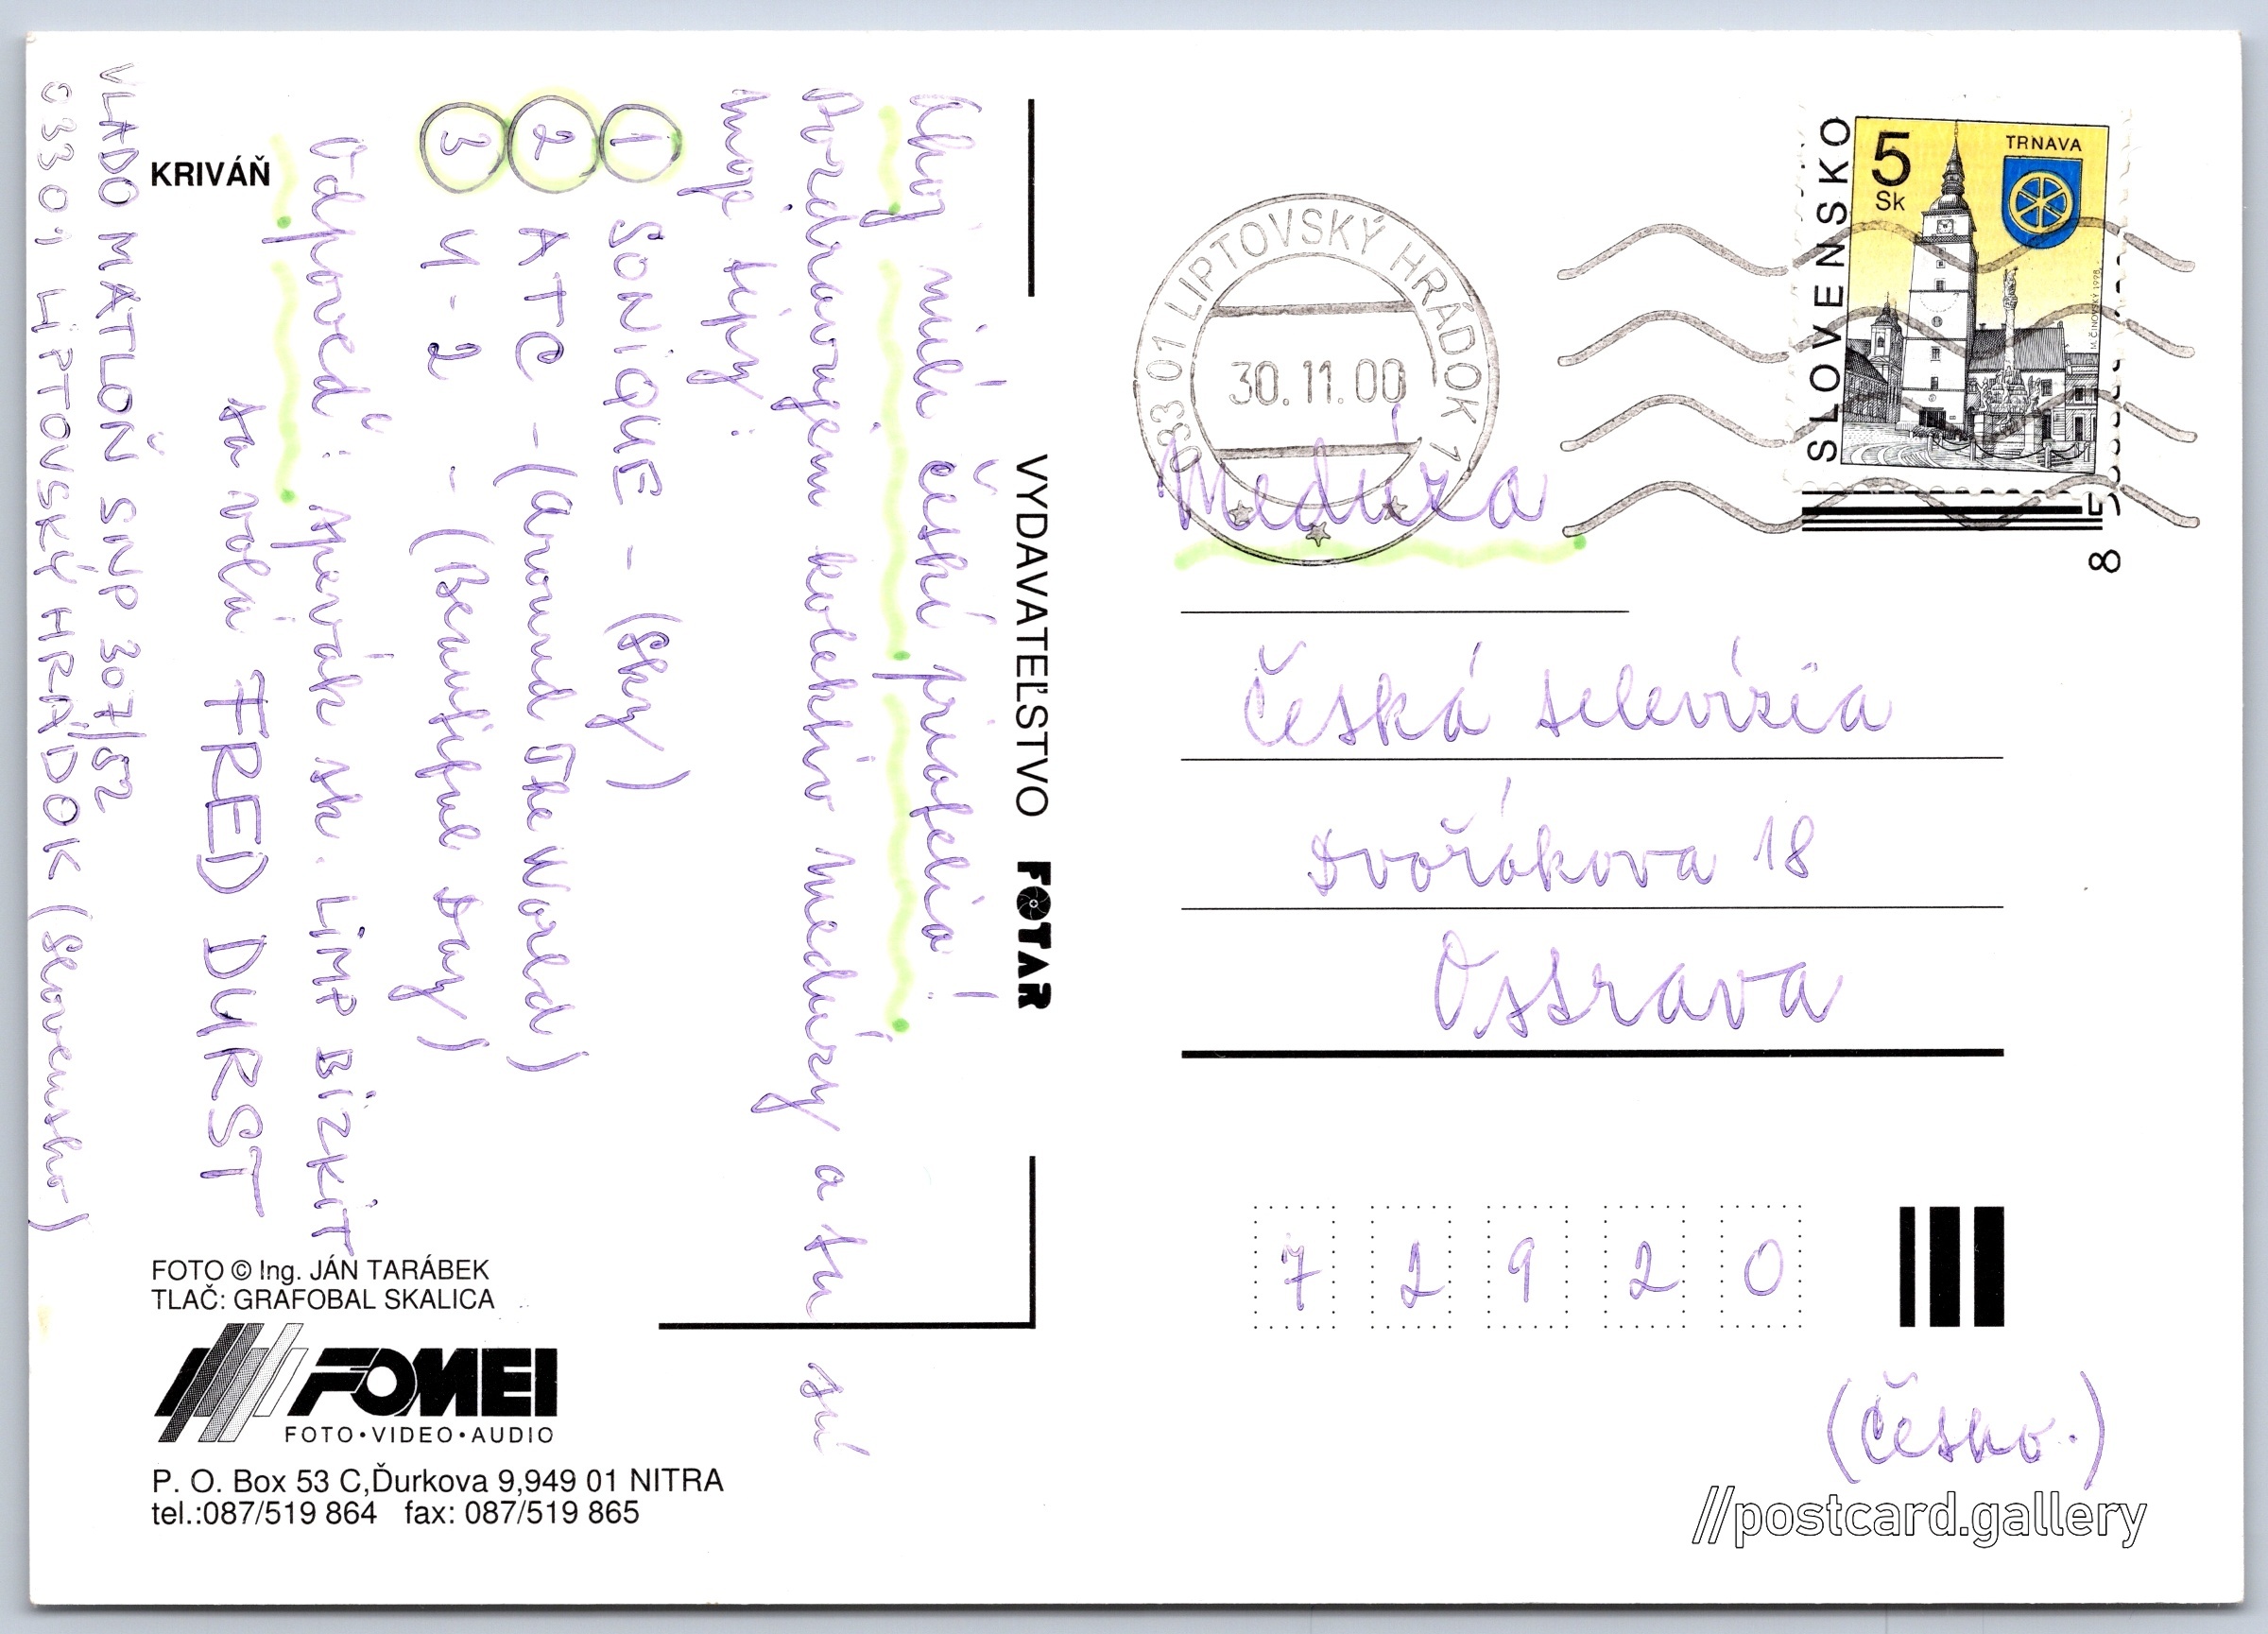 Ahoj milí českí priatelia!
Pozdravujem kolektív Medúzy a tu sú
moje tipy:
1 SONIQUE - (Sky)
2 ATC - (Around The World)
3 U-2 - (Beautiful Day)
Odpoveď: spevák sk. LIMP BIZKIT
sa volá FRED DURST
VLADO MATLOŇ SNP 307/52
033 01 LIPTOVSKÝ HRÁDOK (Slovensko)
KRIVÁŇ
FOTO © Ing. JÁN TARÁBEK
TLAČ: GRAFOBAL SKALICA
FOMEI
FOTO•VIDEO•AUDIO
P. O. Box 53 C,Ďurkova 9,949 01 NITRA
tel.:087/519 864 fax: 087/519 865
VYDAVATEĽSTVO FOTAR
033 01 LIPTOVSKÝ HRÁDOK 1
30.11.00
SLOVENSKO
5 Sk
TRNAVA
M. ČINOVSKÝ 1998
8
Medúza
Česká televízia
Dvořákova 18
Ostrava
7 2 9 2 0
(Česko.)
//postcard.gallery